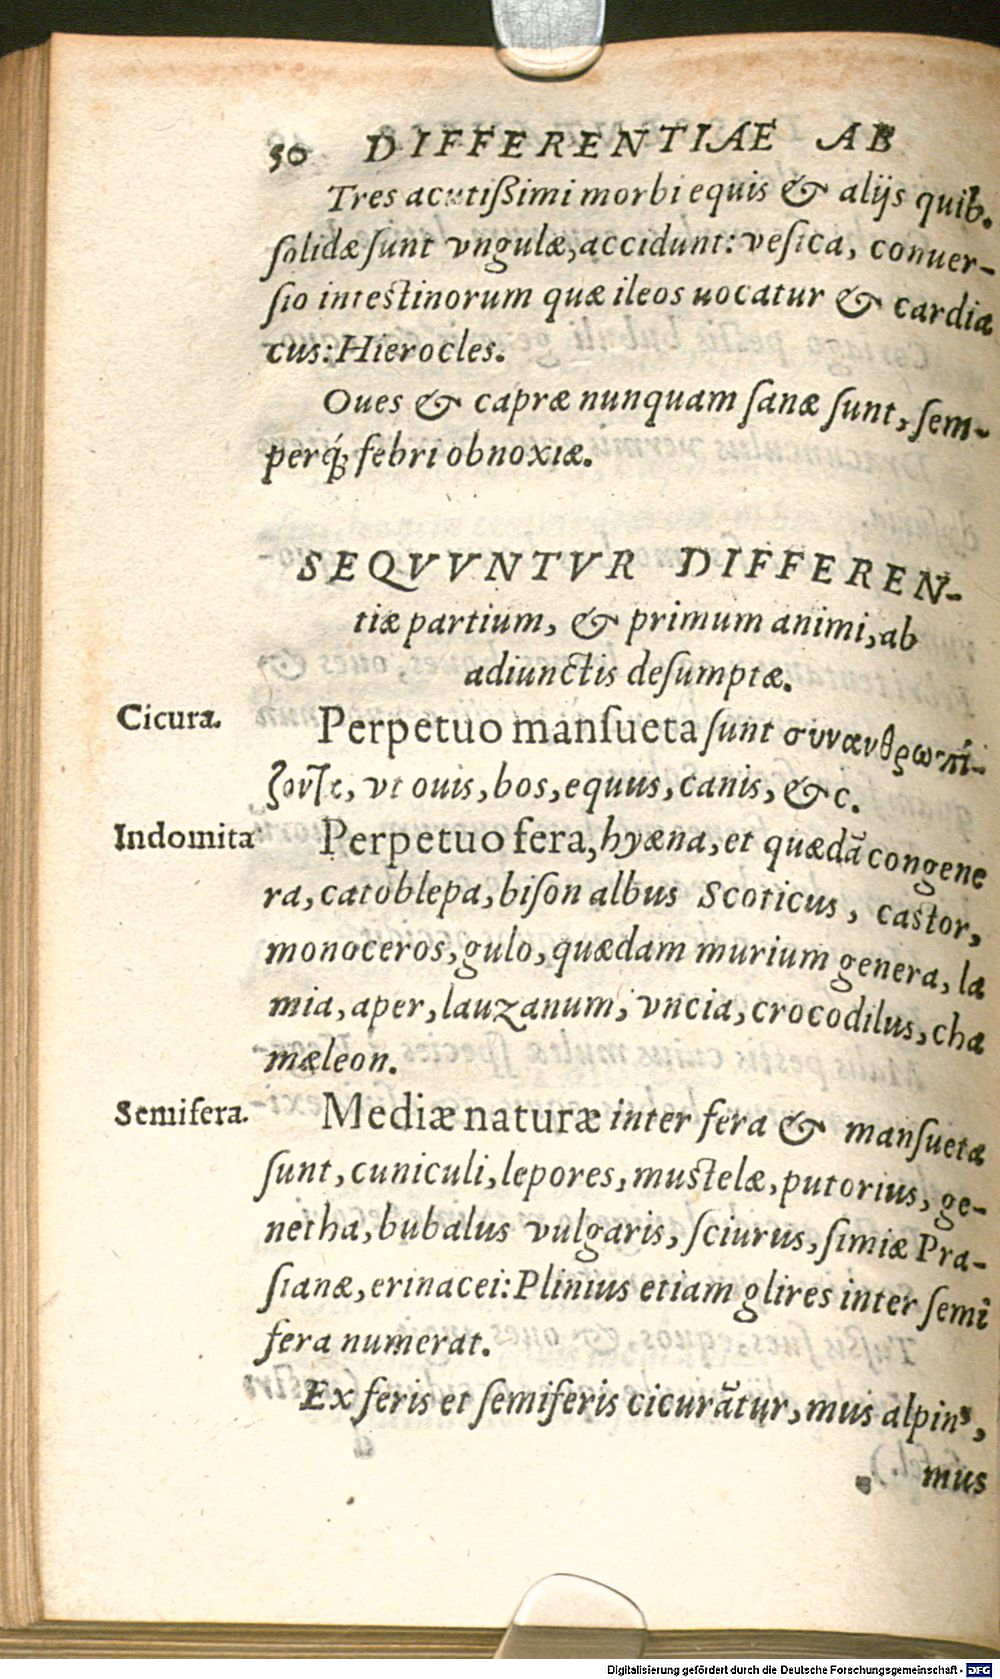 50 DIFFERENTIAE AB
Tres acutißimi morbi equis & alijs quib.
solidæ sunt vngulæ, accidunt: vesica, conuer-
sio intestinorum quæ ileos uocatur & cardia
cus: Hierocles.
Oues & capræ nunquam sanæ sunt, sem-
perq́; febri obnoxiæ.
SEQVVNTVR DIFFEREN-
tiæ partium, & primum animi, ab
adiunctis desumptæ.
Cicura. Perpetuo mansueta sunt συνανθρωπί-
ζοντα, vt ouis, bos, equus, canis, & c.
Indomita Perpetuo fera, hyæna, et quædã congene
ra, catoblepa, bison albus Scoticus, castor,
monoceros, gulo, quædam murium genera, la
mia, aper, lauzanum, vncia, crocodilus, cha
mæleon.
Semifera. Mediæ naturæ inter fera & mansueta
sunt, cuniculi, lepores, mustelæ, putorius, ge-
netha, bubalus vulgaris, sciurus, simiæ Pra-
sianæ, erinacei: Plinius etiam glires inter semi
fera numerat.
Ex feris et semiferis cicurãtur, mus alpinꝰ,
mus
Digitalisierung gefördert durch die Deutsche Forschungsgemeinschaft - DFG